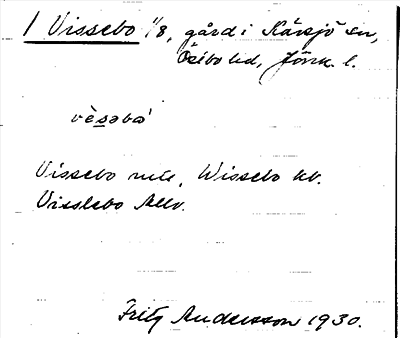 / Vissebo 1/8, gård i Kävsjö sn,
Östbo hd, Jönk. l.
vèsəbò
Vissebo mtl, Wissebo kb.
Visslebo Allm.
Fritz Andersson 1930.